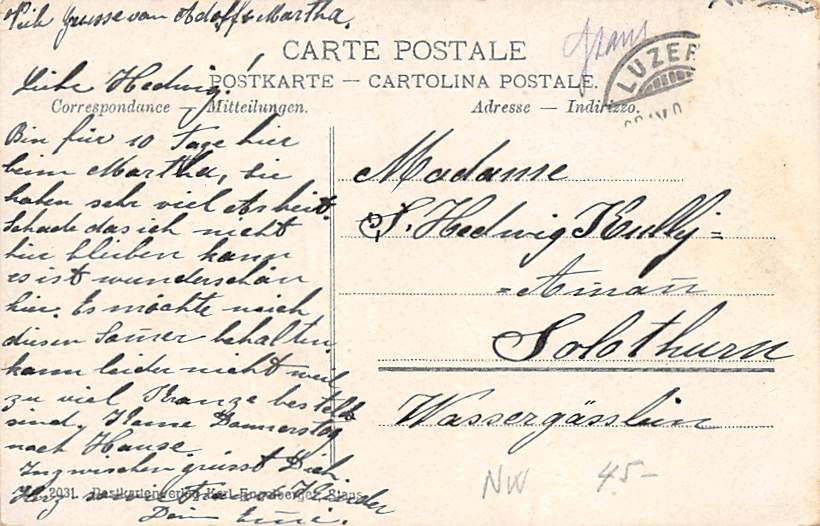 Viele Grüsse von Adolf & Martha.
CARTE POSTALE
POSTKARTE — CARTOLINA POSTALE.
Correspondance — Mitteilungen.
Adresse — Indirizzo.
LUZER
Liebe Hedwig!
Bin für 10 Tage hier
beim Martha, sie
haben sehr viel Arbeit.
Schade das ich nicht
hier bleiben kann
es ist wunderschön
hier. Es möchte mich
diesen Som̄er behalten
kann leider nicht weil
zu viel Kranze bestellt
sind. Kome Donnerstag
nach Hause
Inzwischen grüsst Dich
Herz samt Kinder
Dein
Madame
S. Hedwig Kully=
=Aman̄
Solothurn
Wassergässlein
2031. Postkartenverlag Karl Engelberger, Stans
NW 45-